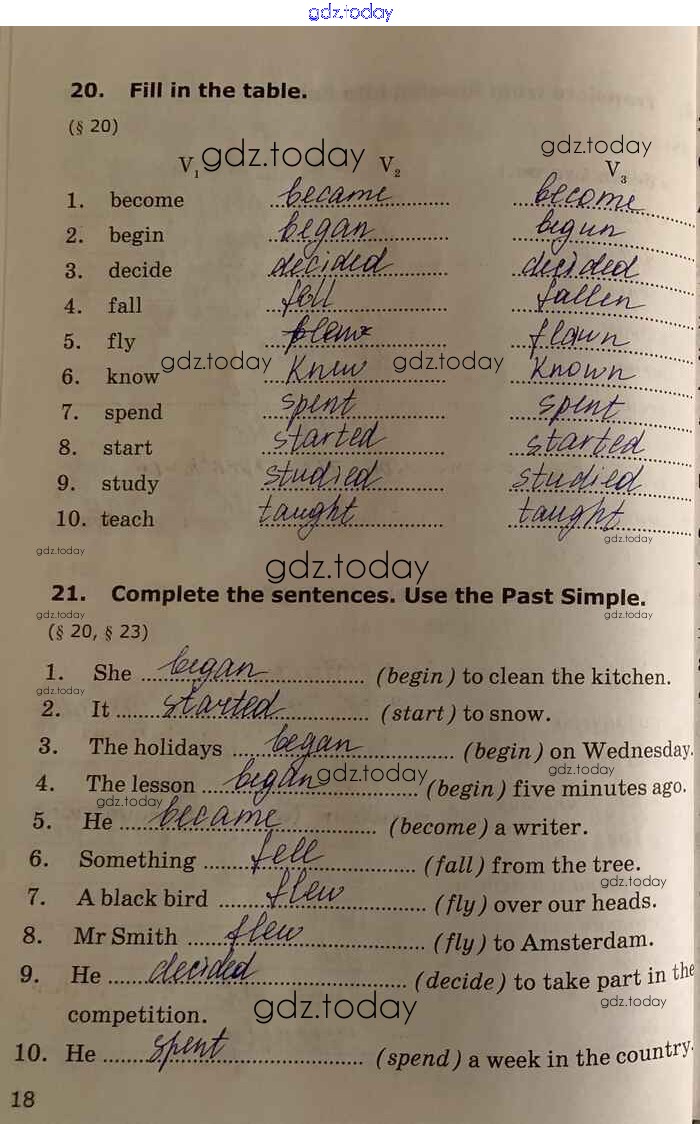 gdz.today
20. Fill in the table.
(§ 20)
gdz.today
gdz.today
V1 V2 V3
1. become became become
2. begin began begun
3. decide decided decided
4. fall fell fallen
5. fly flown
gdz.today gdz.today
6. know Knew Known
7. spend spent spent
8. start started started
9. study studied studied
10. teach taught taught
gdz.today
gdz.today
gdz.today
21. Complete the sentences. Use the Past Simple.
gdz.today
gdz.today
(§ 20, § 23)
1. She began (begin) to clean the kitchen.
gdz.today
2. It started (start) to snow.
3. The holidays began (begin) on Wednesday.
gdz.today
gdz.today
4. The lesson began (begin) five minutes ago.
gdz.today
5. He became (become) a writer.
6. Something fell (fall) from the tree.
gdz.today
7. A black bird flew (fly) over our heads.
8. Mr Smith flew (fly) to Amsterdam.
9. He decided (decide) to take part in the
gdz.today
gdz.today
competition.
10. He spent (spend) a week in the country.
18